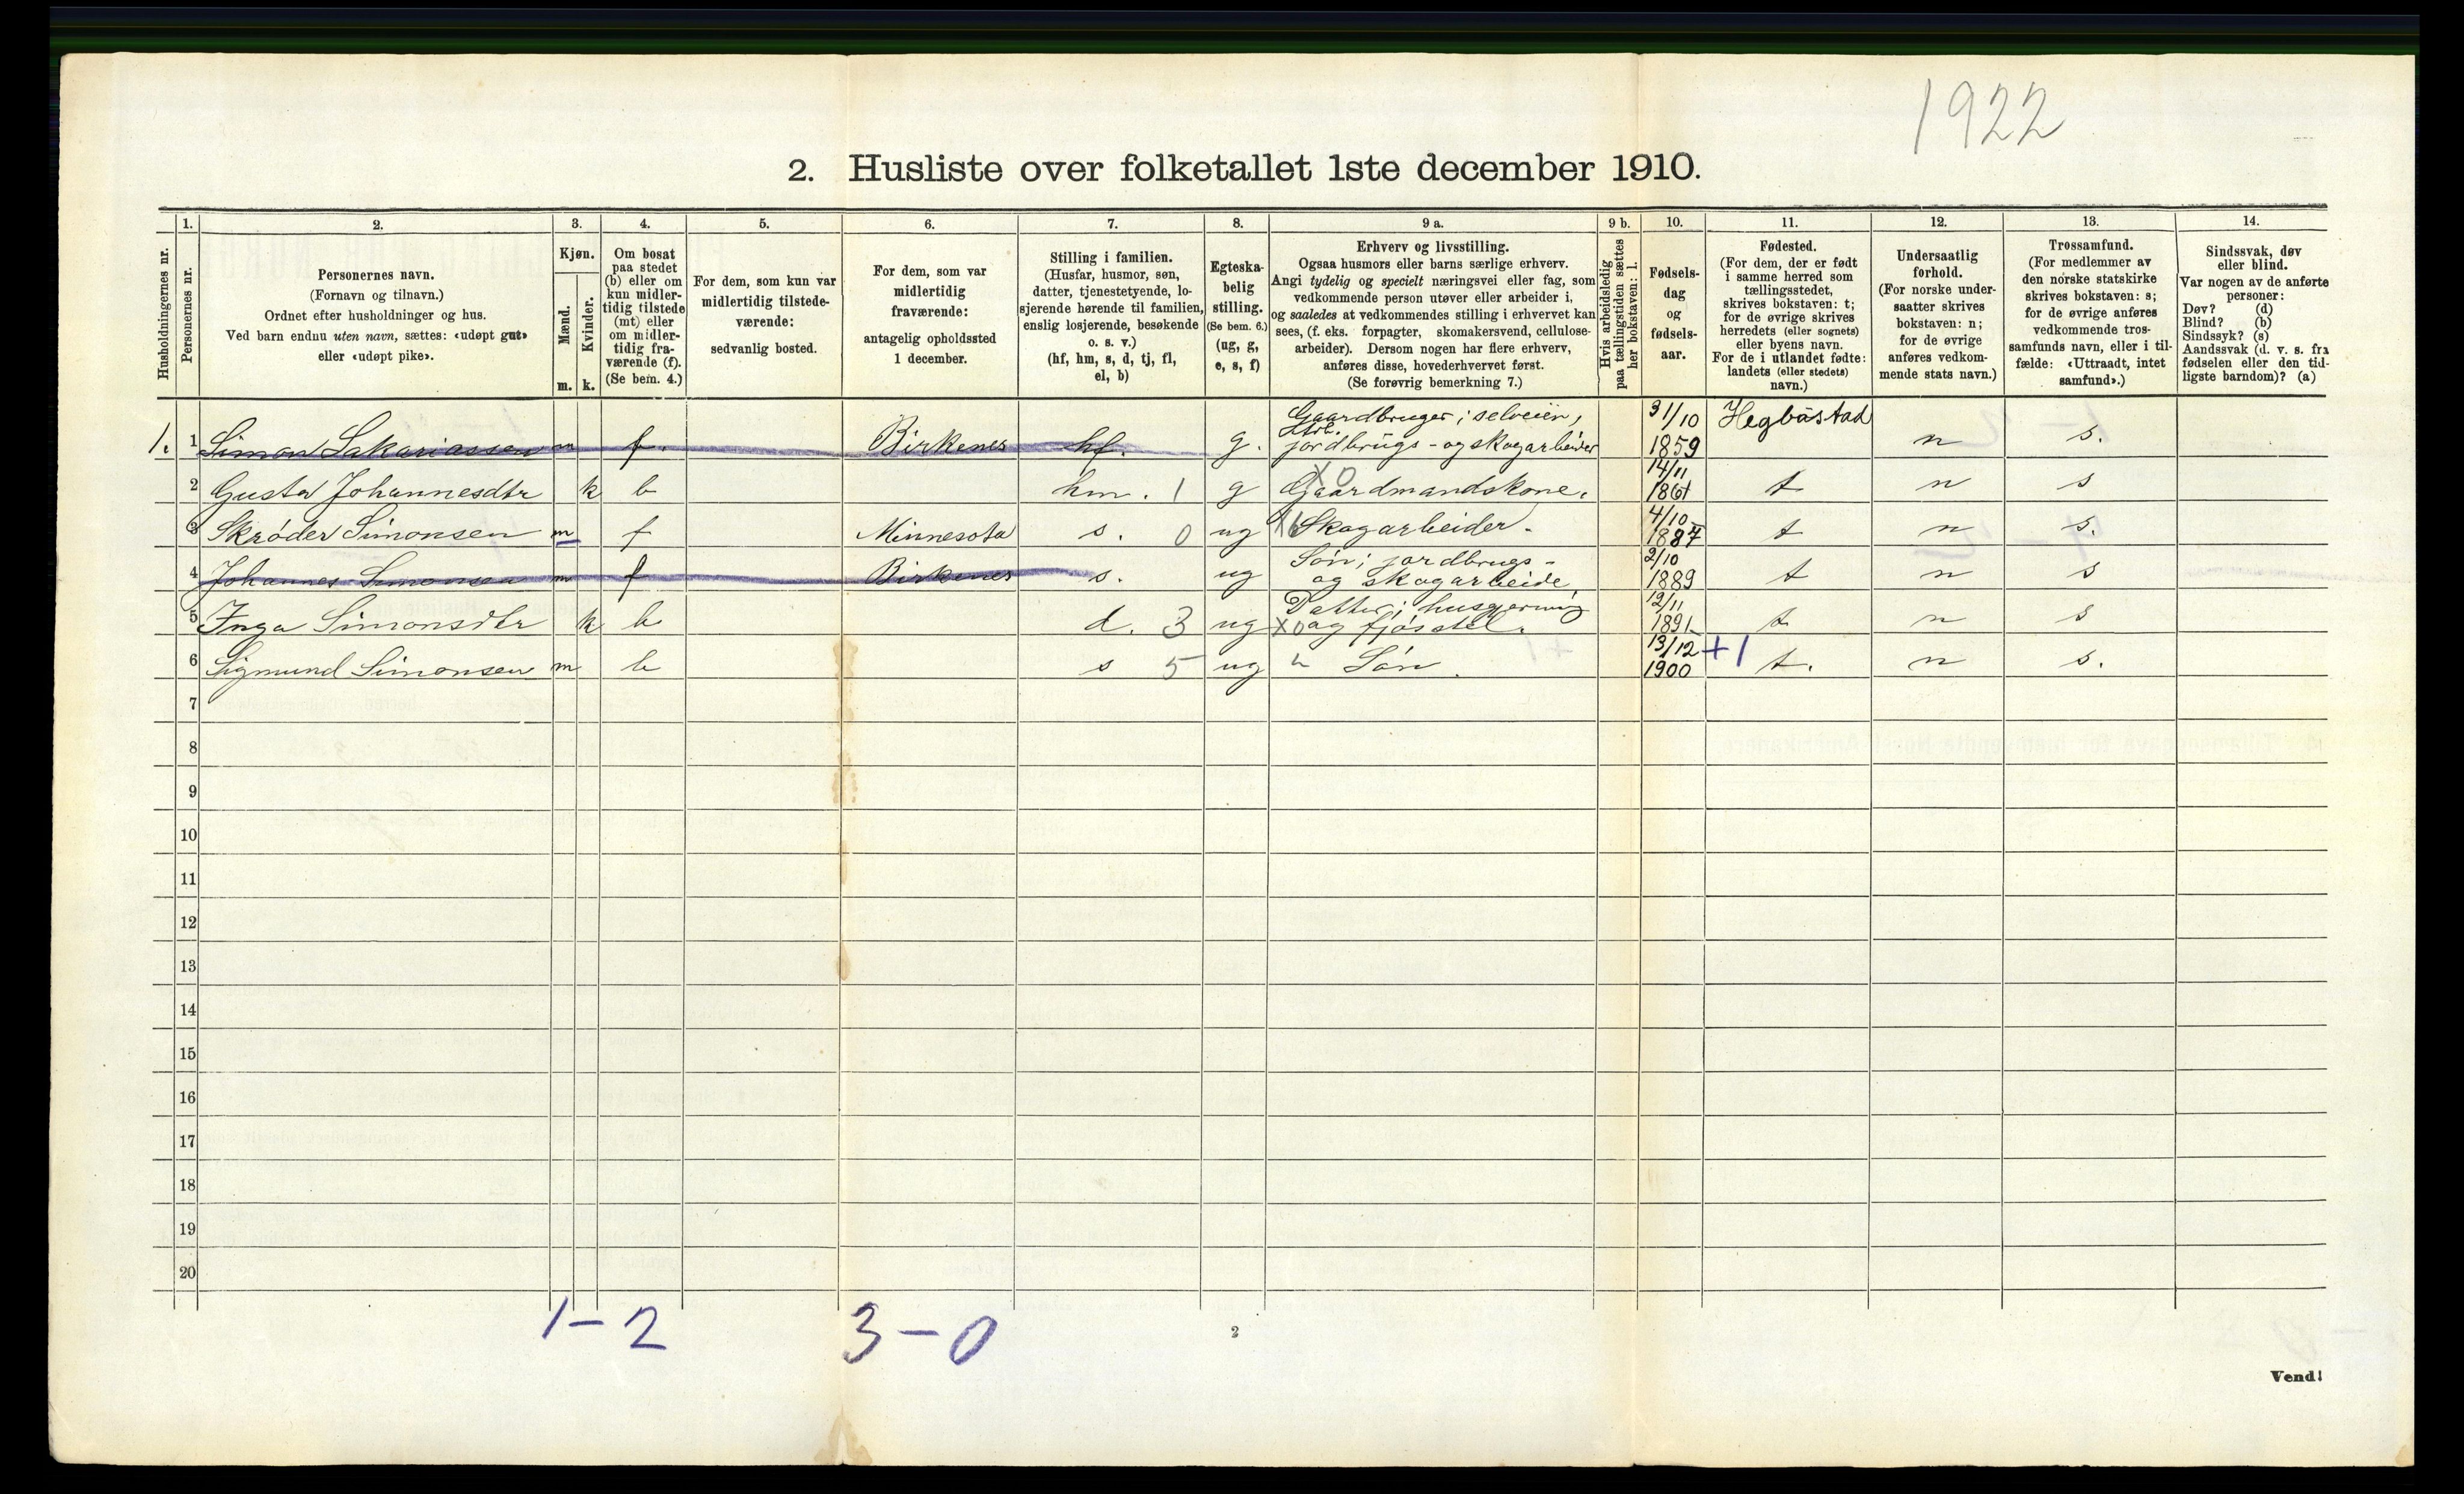 1922
2. Husliste over folketallet 1ste december 1910.
Husholdningernes nr.
1.
Personernes nr.
2.
Personernes navn.
(Fornavn og tilnavn.)
Ordnet efter husholdninger og hus.
Ved barn endnu uten navn, sættes: «udøpt gut»
eller «udøpt pike».
3.
Kjøn.
Mænd.
m.
Kvinder.
k.
4.
Om bosat
paa stedet
(b) eller om
kun midler-
tidig tilstede
(mt) eller
om midler-
tidig fra-
værende (f).
(Se bem. 4.)
5.
For dem, som kun var
midlertidig tilstede-
værende:
sedvanlig bosted.
6.
For dem, som var
midlertidig
fraværende:
antagelig opholdssted
1 december.
7.
Stilling i familien.
(Husfar, husmor, søn,
datter, tjenestetyende, lo-
sjerende hørende til familien,
enslig losjerende, besøkende
o. s. v.)
(hf, hm, s, d, tj, fl,
el, b)
8.
Egteska-
belig
stilling.
(Se bem. 6.)
(ug, g,
e, s, f)
9 a.
Erhverv og livsstilling.
Ogsaa husmors eller barns særlige erhverv.
Angi tydelig og specielt næringsvei eller fag, som
vedkommende person utøver eller arbeider i,
og saaledes at vedkommendes stilling i erhvervet kan
sees, (f. eks. forpagter, skomakersvend, cellulose-
arbeider). Dersom nogen har flere erhverv,
anføres disse, hovederhvervet først.
(Se forøvrig bemerkning 7.)
9 b.
Hvis arbeidsledig
paa tællingstiden sættes
her bokstaven: l.
10.
Fødsels-
dag
og
fødsels-
aar.
11.
Fødested.
(For dem, der er født
i samme herred som
tællingsstedet,
skrives bokstaven: t;
for de øvrige skrives
herredets (eller sognets)
eller byens navn.
For de i utlandet fødte:
landets (eller stedets)
navn.)
12.
Undersaatlig
forhold.
(For norske under-
saatter skrives
bokstaven: n;
for de øvrige
anføres vedkom-
mende stats navn.)
13.
Trossamfund.
(For medlemmer av
den norske statskirke
skrives bokstaven: s;
for de øvrige anføres
vedkommende tros-
samfunds navn, eller i til-
fælde: «Uttraadt, intet
samfund».)
14.
Sindssvak, døv
eller blind.
Var nogen av de anførte
personer:
Døv? (d)
Blind? (b)
Sindssyk? (s)
Aandssvak (d. v. s. fra
fødselen eller den tid-
ligste barndom)? (a)
Gaardbruger; selveien,
1. 1 Simon Sakariassen m f. Birkenes hf. g. jordbrugs- og skogarbeider 31/10 1859 Hegbåstad n s.
2 Gusta Johannesdtr k b hm. 1 g X0 Gaardmandskone. 14/11 1861 t n s
3 Skrøder Simonsen m f Minnesota s. 0 ug Skogarbeider. 4/10 1887 t n s.
4 Johannes Simonsen m f Birkenes s. ug Søn; jordbrugs- og skogarbeide, 2/10 1889 t n s
5 Inga Simonsdtr k b d. 3 ug X0 Datter; husgerning og fjøsstel. 12/11 1891 t n s
6 Sigmund Simonsen m b s 5 ug " Søn. 13/12 1900 +1 t. n s.
7
8
9
10
11
12
13
14
15
16
17
18
19
20
1-2 3-0
2
Vend!